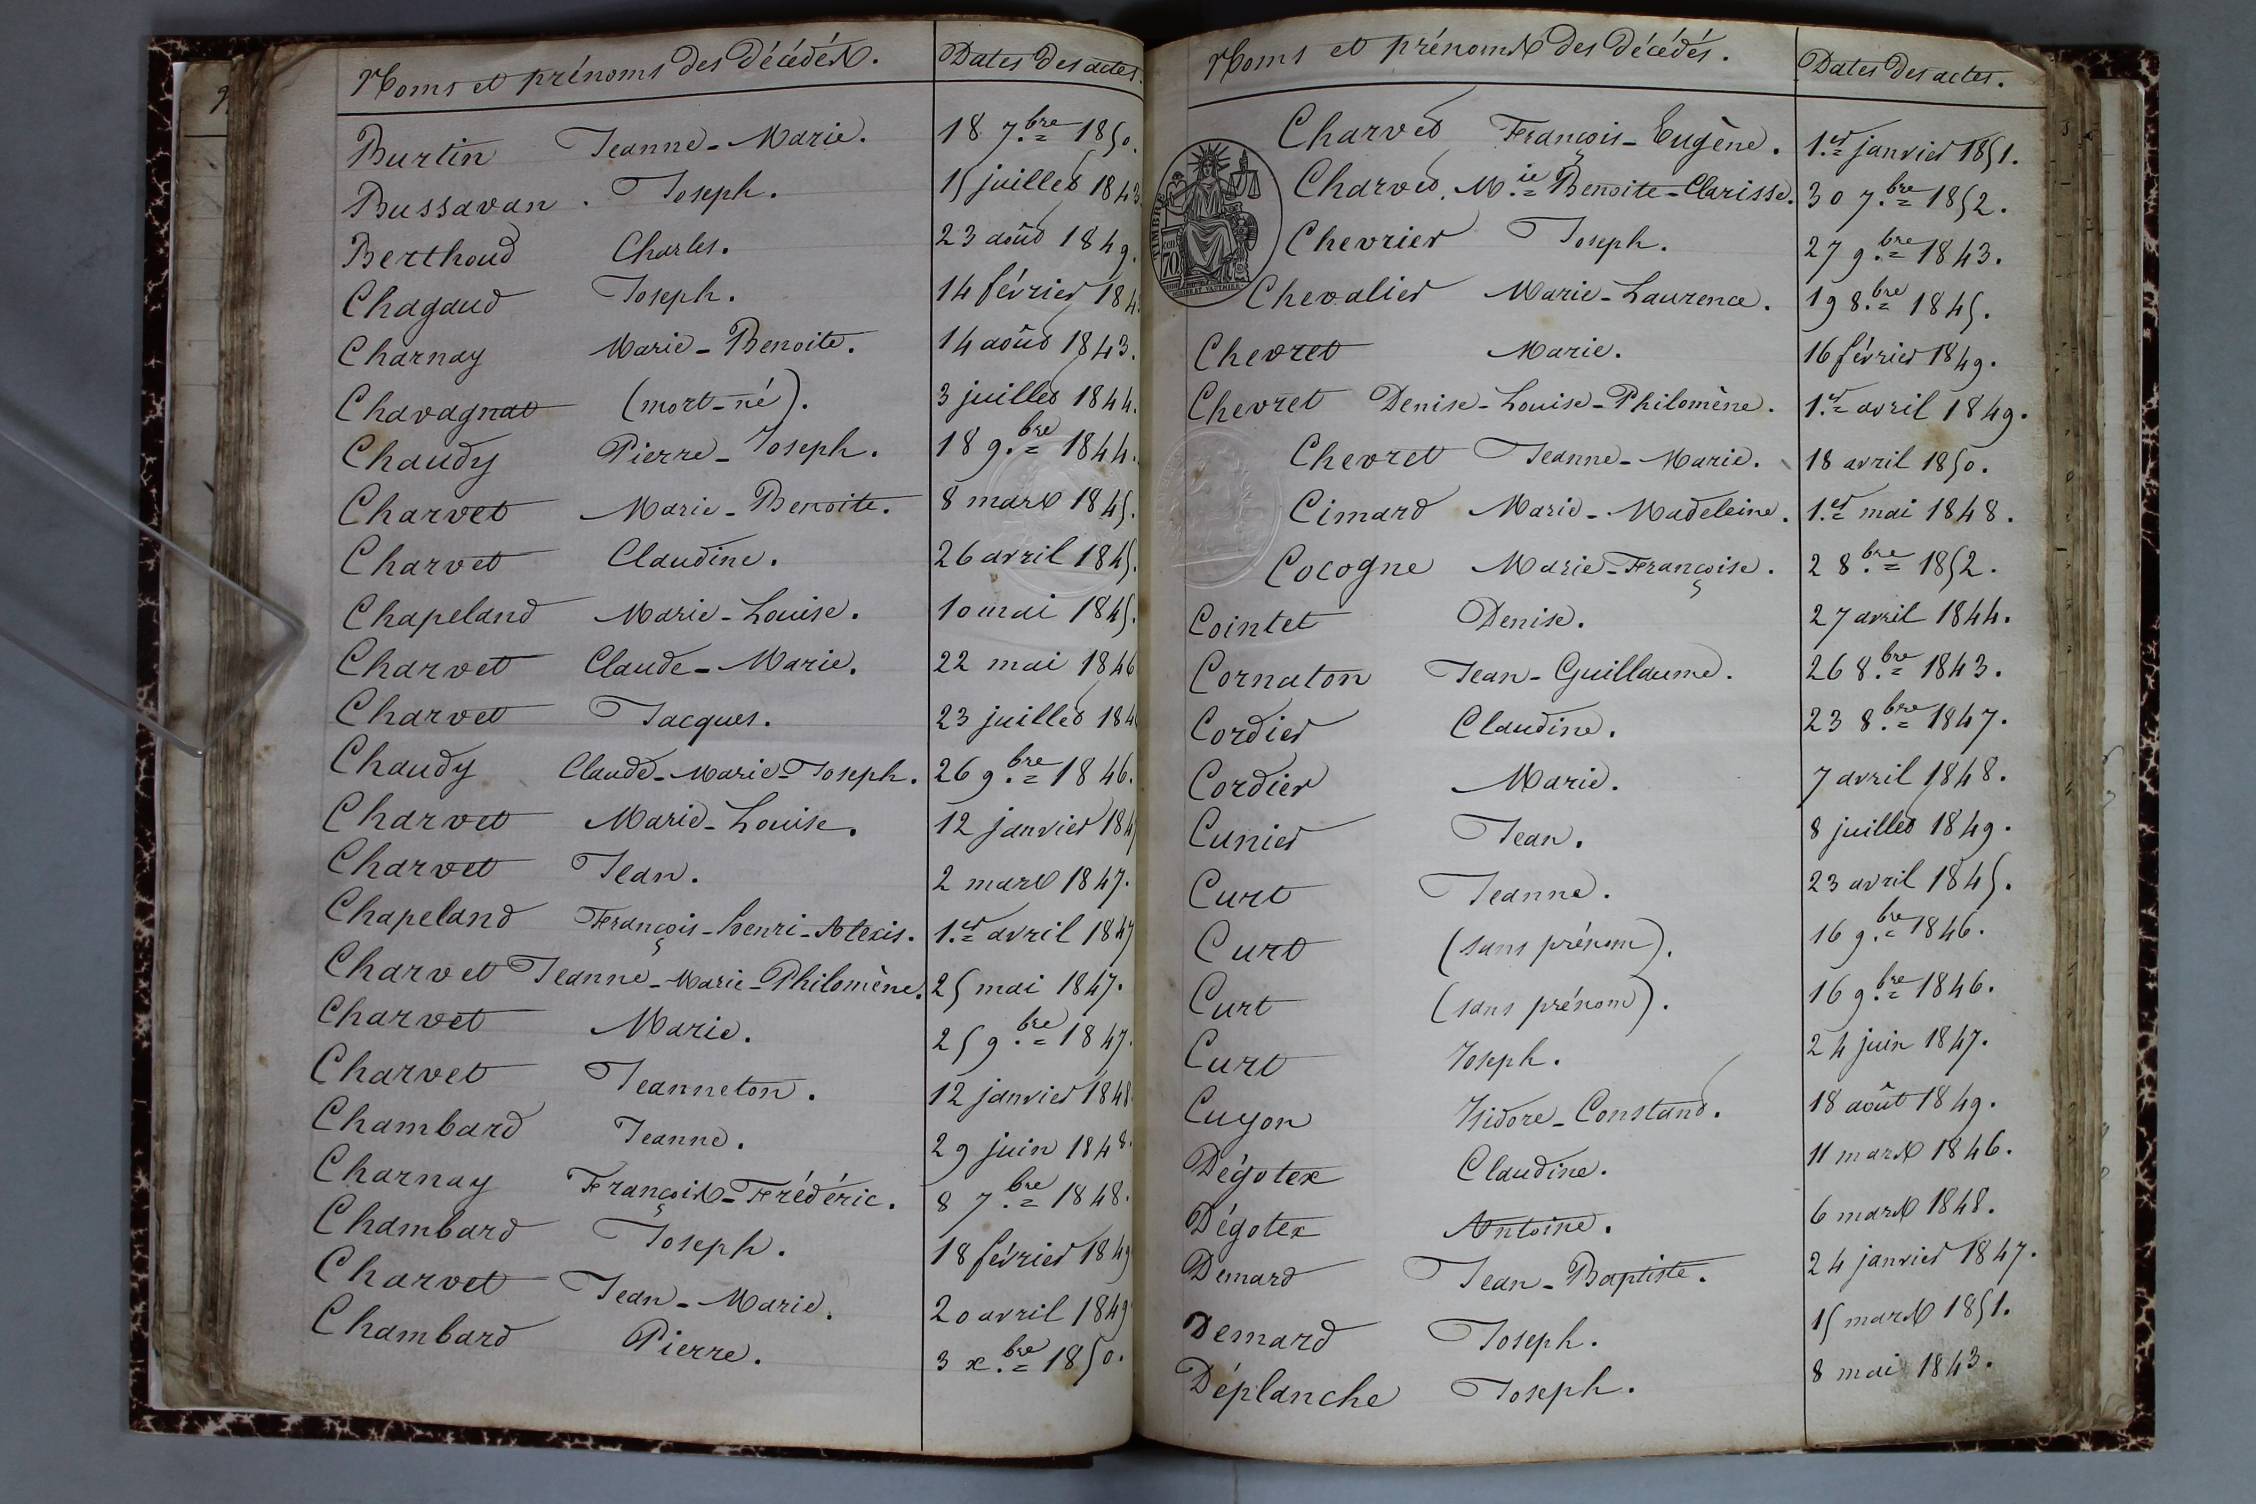 Noms et prénoms des décédés. Dates des actes.
Burtin Jeanne-Marie. 18 7.bre 1850.
Bussavan. Joseph. 15 juillet 1843
Berthoud Charles. 23 août 1849.
Chagaud Joseph. 14 février 184
Charnay Marie-Benoite. 14 août 1843.
Chavagnat (mort-né). 3 juillet 1844.
Chaudy Pierre-Joseph. 18 9.bre 1844.
Charvet Marie-Benoite. 8 mars 1845.
Charvet Claudine. 26 avril 1845.
Chapeland Marie-Louise. 10 mai 1845.
Charvet Claude-Marie. 22 mai 1846
Charvet Jacques. 23 juillet 184
Chaudy Claude-Marie-Joseph. 26 9.bre 1846.
Charvet Marie-Louise. 12 janvier 184
Charvet Jean. 2 mars 1847.
Chapeland François-henri-Alexis. 1.er avril 1847
Charvet Jeanne-Marie-Philomène. 25 mai 1847.
Charvet Marie. 25 9.bre 1847.
Charvet Jeanneton. 12 janvier 1848
Chambard Jeanne. 29 juin 1848.
Charnay François-Frédéric. 8 7.bre 1848.
Chambard Joseph. 18 février 1849
Charvet Jean-Marie. 20 avril 1849
Chambard Pierre. 3 x.bre 1850.
Noms et prénoms des décédés. Dates des actes.
Charvet François-Eugène. 1.er janvier 1851.
Charvet. M.ie Benoite-Clarisse. 30 7.bre 1852.
Chevrier Joseph. 27 9.bre 1843.
Chevalier Marie-Laurence. 19 8.bre 1845.
TIMBRE
70
Chevret Marie. 16 février 1849.
Chevret Denise-Louise-Philomène. 1.er avril 1849.
Chevret Jeanne-Marie. 18 avril 1850.
Cimard Marie-Madeleine. 1.er mai 1848.
Cocogne Marie-Françoise. 2 8.bre 1852.
Cointet Denise. 27 avril 1844.
Cornaton Jean-Guillaume. 26 8.bre 1843.
Cordier Claudine. 23 8.bre 1847.
Cordier Marie. 7 avril 1848.
Cunier Jean. 8 juillet 1849.
Curt Jeanne. 23 avril 1845.
Curt (sans prénom). 16 9.bre 1846.
Curt (sans prénom). 16 9.bre 1846.
Curt Joseph. 24 juin 1847.
Cuyon Isidore-Constant. 18 août 1849.
Dégotex Claudine. 11 mars 1846.
Dégotex Antoine. 6 mars 1848.
Demard Jean-Baptiste. 24 janvier 1847.
Demard Joseph. 15 mars 1851.
Déplanche Joseph. 8 mai 1843.